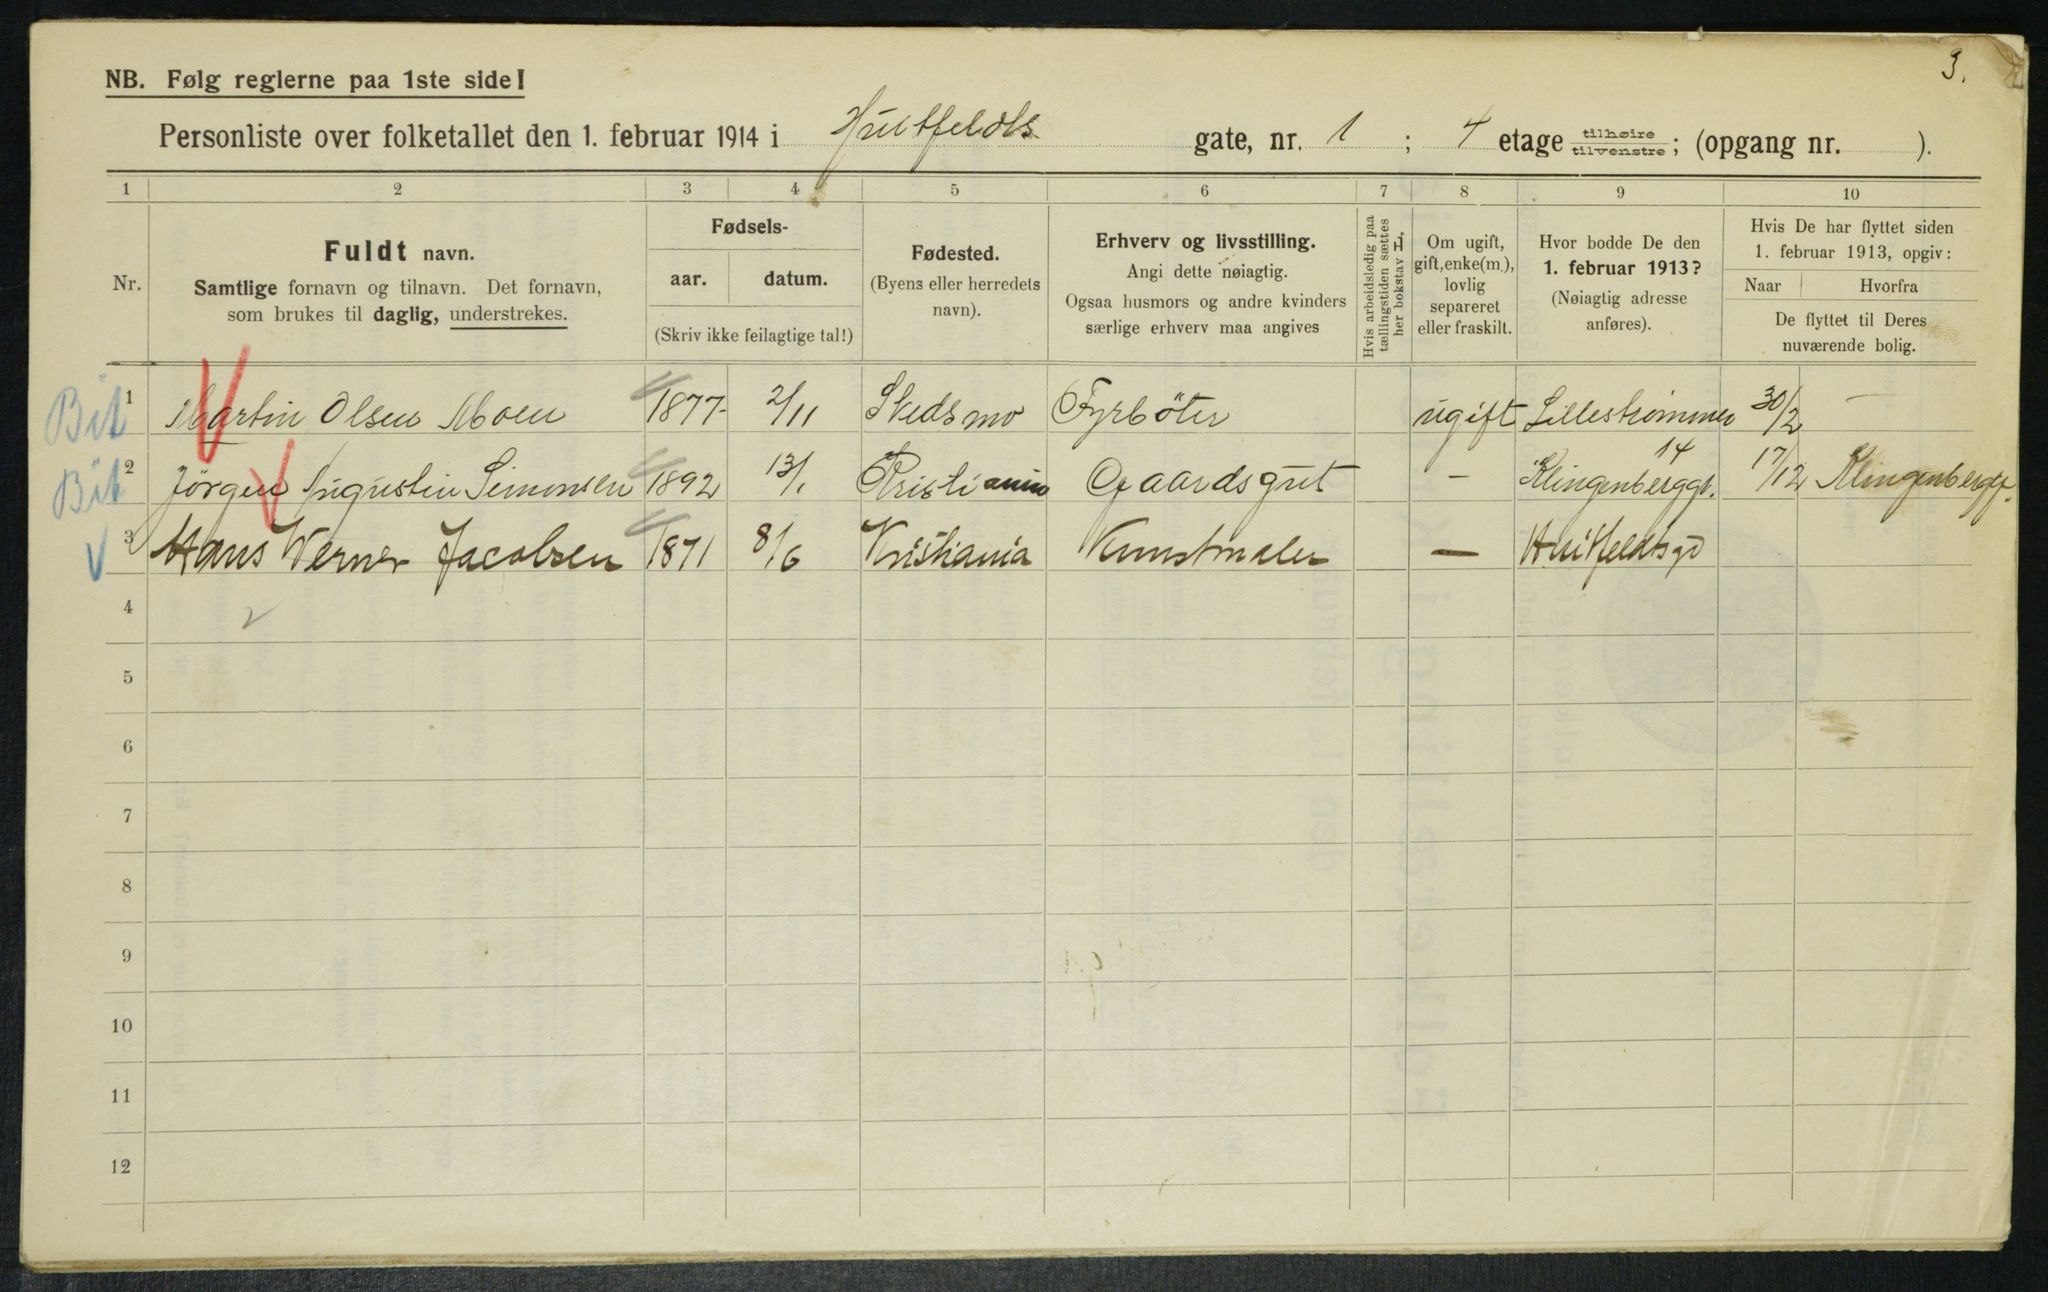 3.
NB. Følg reglerne paa 1ste side!
Personliste over folketallet den 1. februar 1914 i Huitfeldts gate, nr. 1 ; 4 etage tilhøire tilvenstre ; (opgang nr. ).
1 2 3 4 5 6 7 8 9 10
Nr.
Fuldt navn.
Samtlige fornavn og tilnavn. Det fornavn,
som brukes til daglig, understrekes.
Fødsels-
aar. datum.
(Skriv ikke feilagtige tal!)
Fødested.
(Byens eller herredets
navn).
Erhverv og livsstilling.
Angi dette nøiagtig.
Ogsaa husmors og andre kvinders
særlige erhverv maa angives
Hvis arbeidsledig paa
tællingstiden sættes
her bokstav H.
Om ugift,
gift, enke(m.),
lovlig
separeret
eller fraskilt.
Hvor bodde De den
1. februar 1913?
(Nøiagtig adresse
anføres).
Hvis De har flyttet siden
1. februar 1913, opgiv:
Naar Hvorfra
De flyttet til Deres
nuværende bolig.
Bit 1 Martin Olsen Moen 1877 2/11 Skedsmo Fyrböter ugift Lillestrømmen 30/2 —
Bit 2 Jörgen Augustin Simonsen 1892 13/1 Kristiania Gaardsgut — Klingenberggt. 14 17/12 Klingenberggt.
3 Hans Werner Jacobsen 1871 8/6 Kristiania Kunstmaler — Huitfeldtsgt
4
5
6
7
8
9
10
11
12